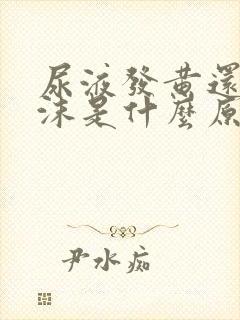 尿液發黃還
沫是什麼原
尹水痴